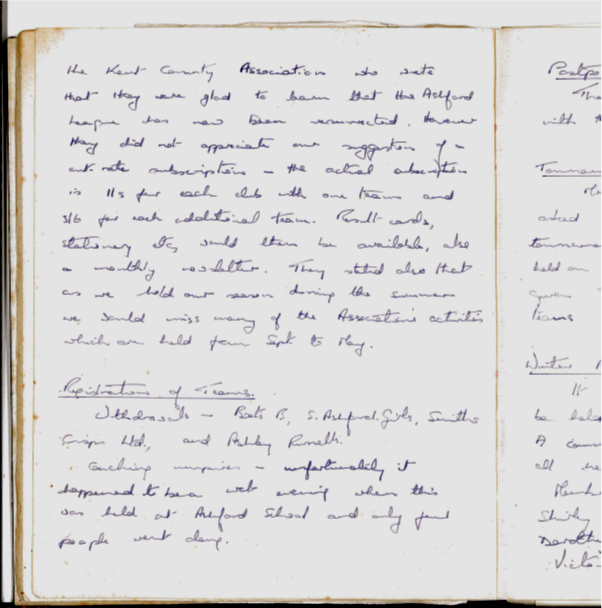 the Kent County Association who wrote
that they were glad to learn that the Ashford
League has now been resurrected. However
they did not appreciate our suggestion of a
cut rate subscription – the actual subscription
is 11s for each club with one team and
3/6 for each additional team. Result cards,
stationery etc, would then be available, also
a monthly newsletter. They stated also that
as we held our season during the summer
we would miss many of the Association's activities
which are held from Sept to May.
Registrations of Teams.
Withdrawals – Bets B, S. Ashford Girls, Smiths
Crisps Ltd, and Ashley Russell.
Coaching umpires – unfortunately it
happened to be a wet evening when this
was held at Ashford School and only four
people went along.
Postpo
The
with
Tournam
asked
tourname
held on
given
teams
Winter
It
be held
A comm
all
Membe
Shirley
Dorothe
Victo